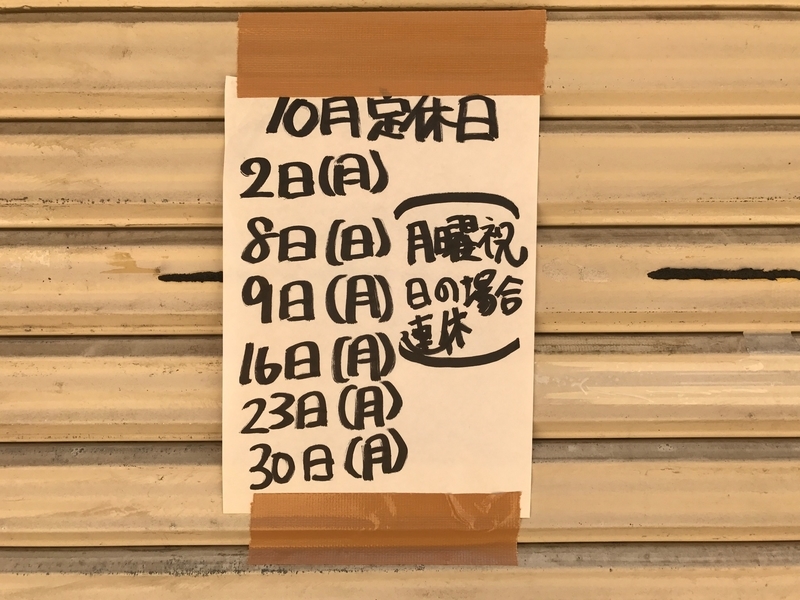 10月定休日
2日(月)
8日(日)
9日(月)
16日(月)
23日(月)
30日(月)
(月曜祝
日の場合
連休)